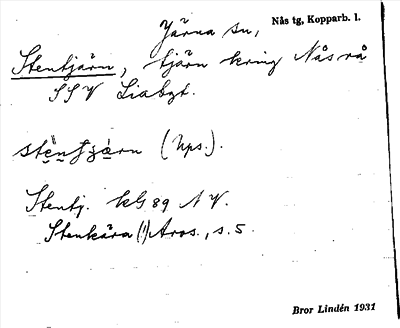 Järna sn, Nås tg, Kopparb. l.
Stentjärn, tjärn kring Nås rå
SSV Liabgt.
(Ups.).
Stentj. kG 89 NV.
Stenkära (!) Aros., s. 5.
Bror Lindén 1931